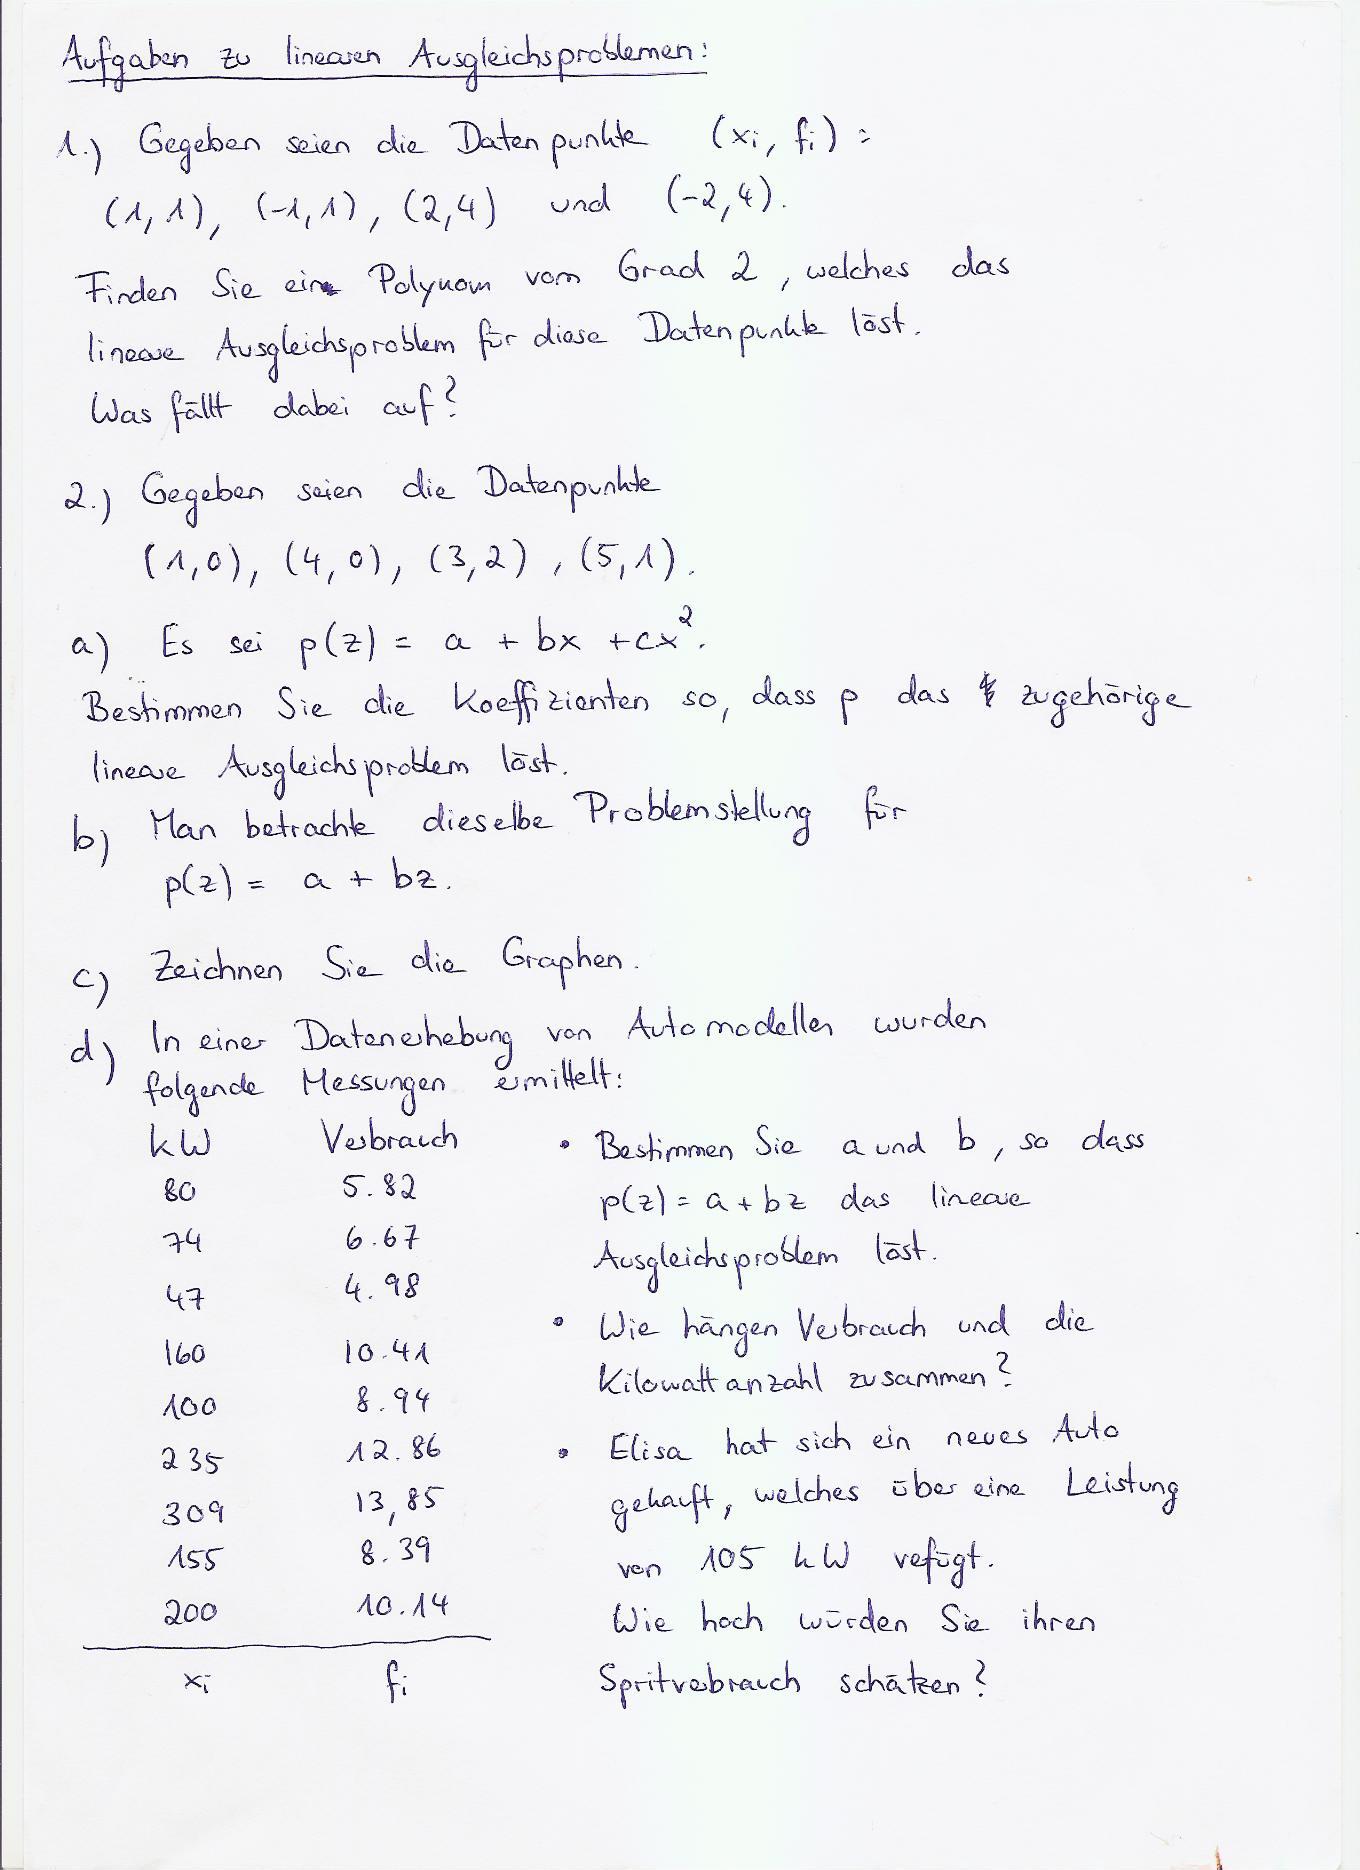 Aufgaben zu linearen Ausgleichsproblemen:
1.) Gegeben seien die Datenpunkte (xi, fi) =
(1,1), (-1,1), (2,4) und (-2,4).
Finden Sie ein Polynom vom Grad 2, welches das
lineare Ausgleichsproblem für diese Datenpunkte löst.
Was fällt dabei auf?
2.) Gegeben seien die Datenpunkte
(1,0), (4,0), (3,2), (5,1).
a) Es sei p(z) = a + bx + cx².
Bestimmen Sie die Koeffizienten so, dass p das zugehörige
lineare Ausgleichsproblem löst.
b) Man betrachte dieselbe Problemstellung für
p(z) = a + bz.
c) Zeichnen Sie die Graphen.
d) In einer Datenerhebung von Automodellen wurden
folgende Messungen ermittelt:
kW Verbrauch
80 5.82
74 6.67
47 4.98
160 10.41
100 8.94
235 12.86
309 13,85
155 8.39
200 10.14
xi fi
• Bestimmen Sie a und b, so dass
p(z) = a + bz das lineare
Ausgleichsproblem löst.
• Wie hängen Verbrauch und die
Kilowattanzahl zusammen?
• Elisa hat sich ein neues Auto
gekauft, welches über eine Leistung
von 105 kW vefügt.
Wie hoch würden Sie ihren
Spritverbrauch schätzen?